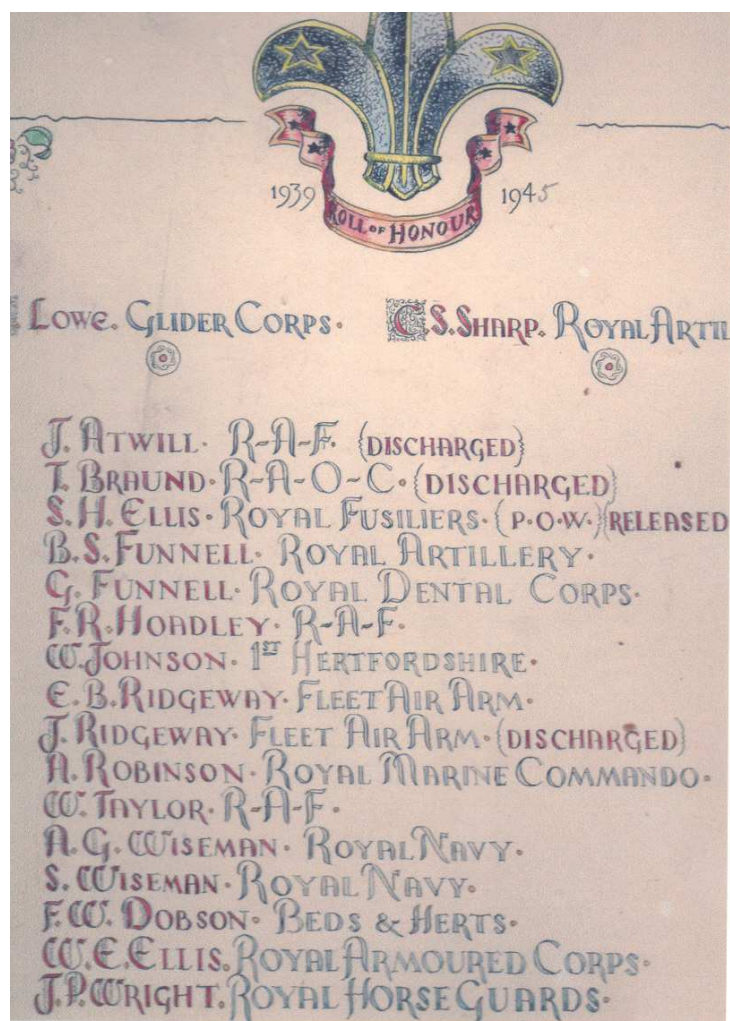 1939 1945
ROLL OF HONOUR
LOWE. GLIDER CORPS. C.S. SHARP. ROYAL ARTIL
J. ATWILL. R-A-F. (DISCHARGED)
T. BRAUND. R-A-O-C. (DISCHARGED)
S.H. ELLIS. ROYAL FUSILIERS. (P.O.W.) (RELEASED
B.S. FUNNELL. ROYAL ARTILLERY.
G. FUNNELL. ROYAL DENTAL CORPS.
F.R. HOADLEY. R-A-F.
W. JOHNSON. 1ST HERTFORDSHIRE.
E.B. RIDGEWAY. FLEET AIR ARM.
J. RIDGEWAY. FLEET AIR ARM. (DISCHARGED)
A. ROBINSON. ROYAL MARINE COMMANDO.
W. TAYLOR. R-A-F.
A.G. WISEMAN. ROYAL NAVY.
S. WISEMAN. ROYAL NAVY.
F.W. DOBSON. BEDS & HERTS.
W.E. ELLIS. ROYAL ARMOURED CORPS.
J.P. WRIGHT. ROYAL HORSE GUARDS.